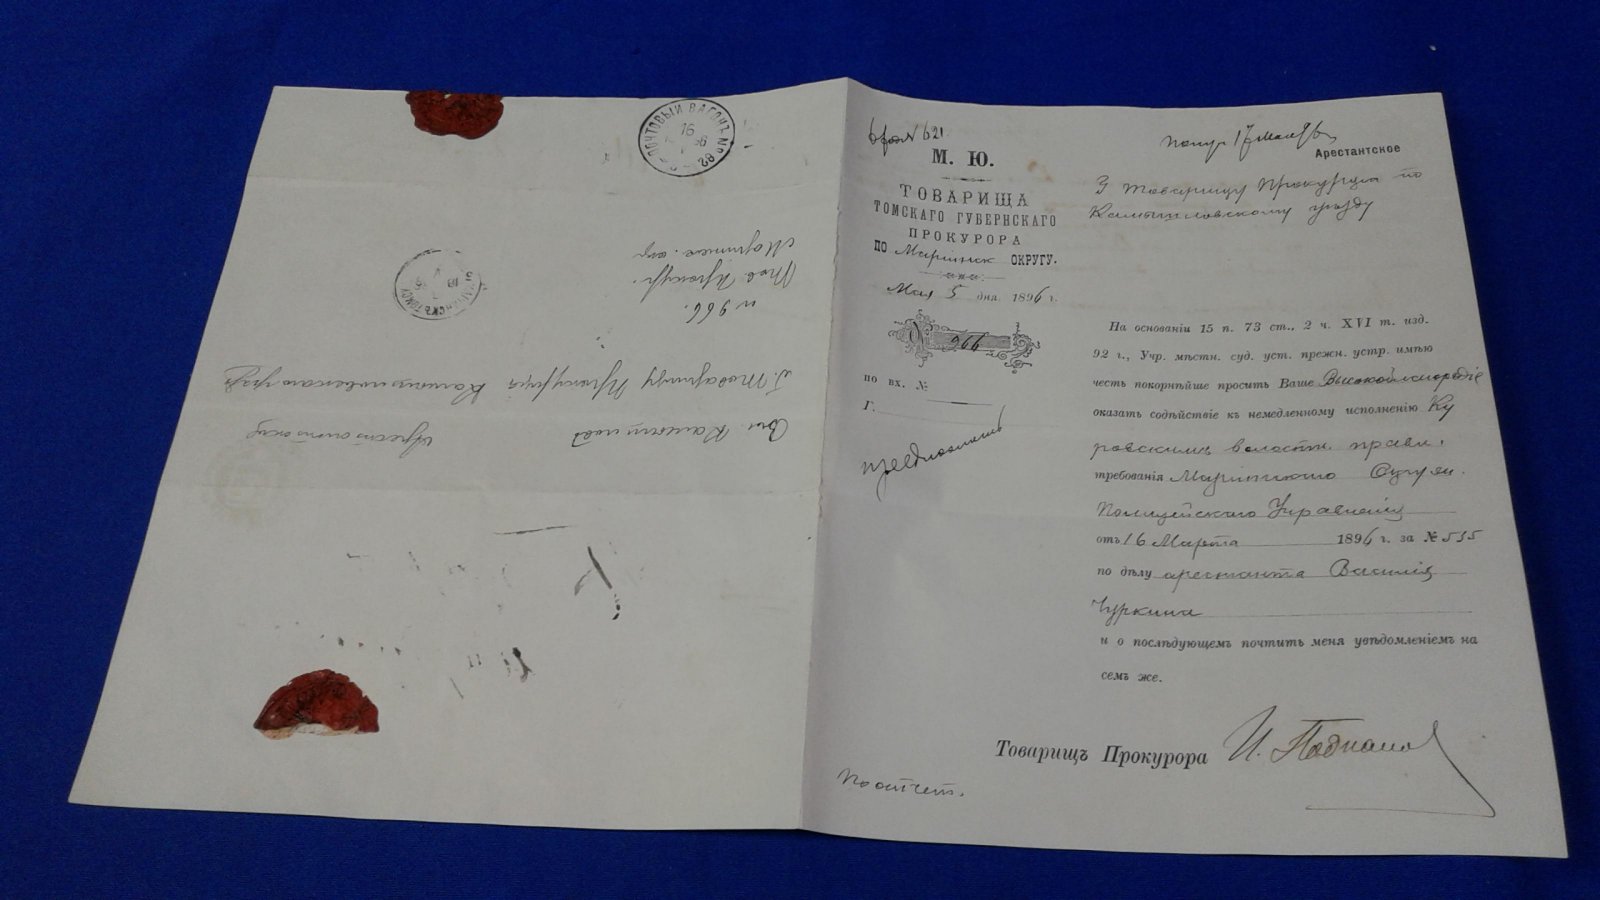 ПОЧТОВЫЙ ВАГОНЪ № 82
16
Арестантское
Г. Товарищу Прокурора Камышловскаго уѣзда
№ 966.
Тов. Прокур.
Маріинск. окр.
М. Ю.
ТОВАРИЩА
ТОМСКАГО ГУБЕРНСКАГО
ПРОКУРОРА
ПО Маріинск ОКРУГУ.
Мая 5 дня 1896 г.
№ 966
по вх. №
Г.
Получ 17 мая 96
Арестантское
Товарищу Прокурора по
Камышловскому уѣзду
На основаніи 15 п. 73 ст., 2 ч. XVI т. изд.
92 г., Учр. мѣстн. суд. уст. прежн. устр. имѣю
честь покорнѣйше просить Ваше Высокоблагородіе
оказать содѣйствіе къ немедленному исполненію Ку
ровскимъ волостн. правл.
требованія Маріинскаго Окружн.
Полицейскаго Управленія
отъ 16 Марта 1896 г. за № 535
по дѣлу арестанта Василія
Чуркина
и о послѣдующемъ почтить меня увѣдомленіемъ на
семъ же.
Товарищъ Прокурора